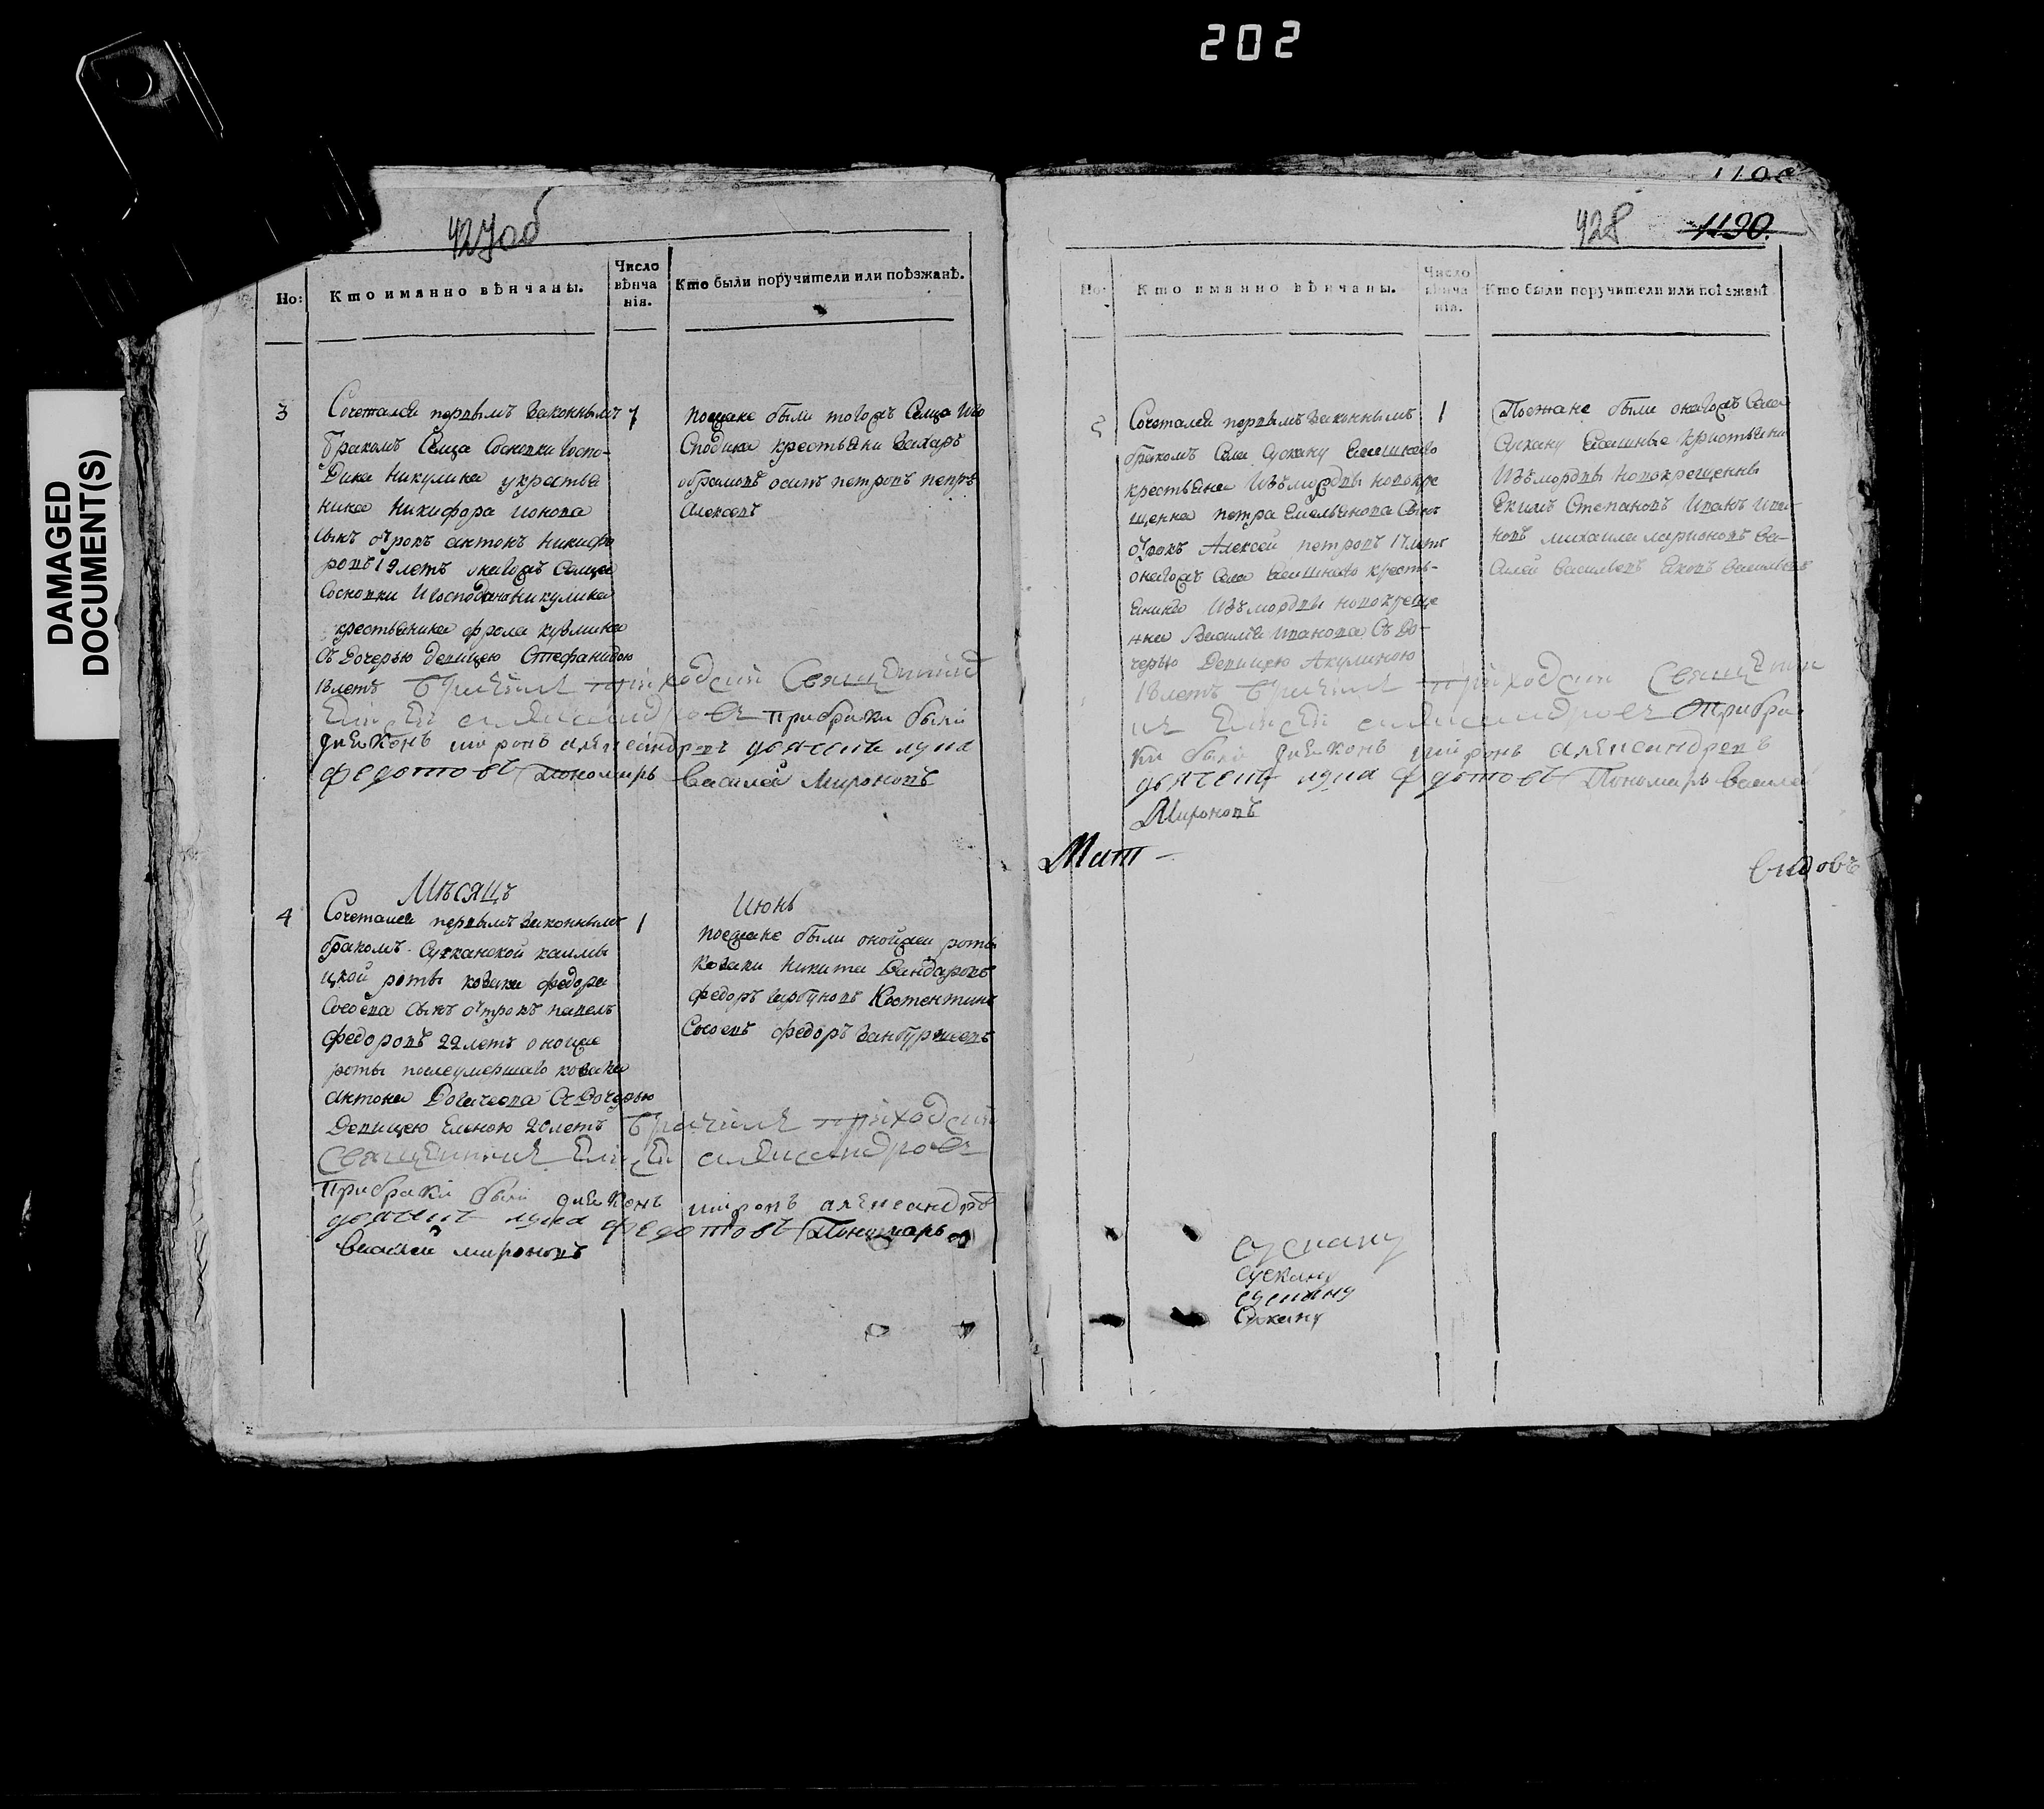 202
DAMAGED
DOCUMENT(S)
427об
Но:
Кто имянно вѣнчаны.
Число
вѣнча
нія.
Кто были поручители или поѣзжанѣ.
3
Сочетался первымъ законнымъ
бракомъ Селца Сосновки Госпо-
дина Никулина
ника Никифора Ионова
сынъ отрокъ Антонъ Никифо
ровъ 19 летъ онагожъ Селца
Сосновки Господина Никулина
крестьянина Фрола Кузмина
съ дочерью девицею Стефанидою
18 летъ венчалъ приходский Священникъ
Елисей Александровъ При браки были
диаконъ Миронъ Александровъ дьячекъ Лука
Федотовъ Пономарь Василей Мироновъ
7
поезжане были тогожъ Селца Го
сподина крестьяни Захаръ
Абрамовъ Осипъ Петровъ Петръ
Алексеевъ
Мѣсяцъ
Июнь
4
Сочетался первымъ законнымъ
бракомъ Сусканской калмы
цкой роты козака Федора
сынъ отрокъ Павелъ
Федоровъ 22 летъ оной же
роты после умершаго козака
Антона съ дочерью
девицею Еленою 20 летъ венчалъ приходский
Священникъ Елисей Александровъ
При браки были диаконъ Миронъ Александровъ
дьячекъ Лука Федотовъ Пономарь
Василей Мироновъ
1
поезжане были оной жеи роты
козаки Никита
Федоръ Костентинъ
Федоръ
428
1190.
Но:
Кто имянно вѣнчаны.
Число
вѣнча
нія.
Кто были поручители или поѣзжанѣ
5
Сочетался первымъ законнымъ
бракомъ Села Сускану Ясашнаго
крестьяна Изъ мордвы новокре
щенна Петра Емельянова сынъ
отрокъ Алексей Петровъ 17 летъ
онагожъ Села Ясашнаго кресть-
янина Изъ мордвы новокреще
нна Василья Иванова съ до-
черью девицею Акулиною
18 летъ венчалъ приходский Священни
къ Елисей Александровъ При бра
ки были диаконъ Миронъ Александровъ
дьячекъ Лука Федотовъ Пономарь Василей
Мироновъ
1
Поезжане были онагожъ Села
Сускану Ясашные крестьяни
Изъ мордвы новокрещенны
Екимъ Степановъ Иванъ Ива-
новъ Михаила Ларионовъ Ва-
силей Васильевъ Яковъ Васильевъ
Мит-
видовъ
Сускану
Сускану
Сускану
Сускану